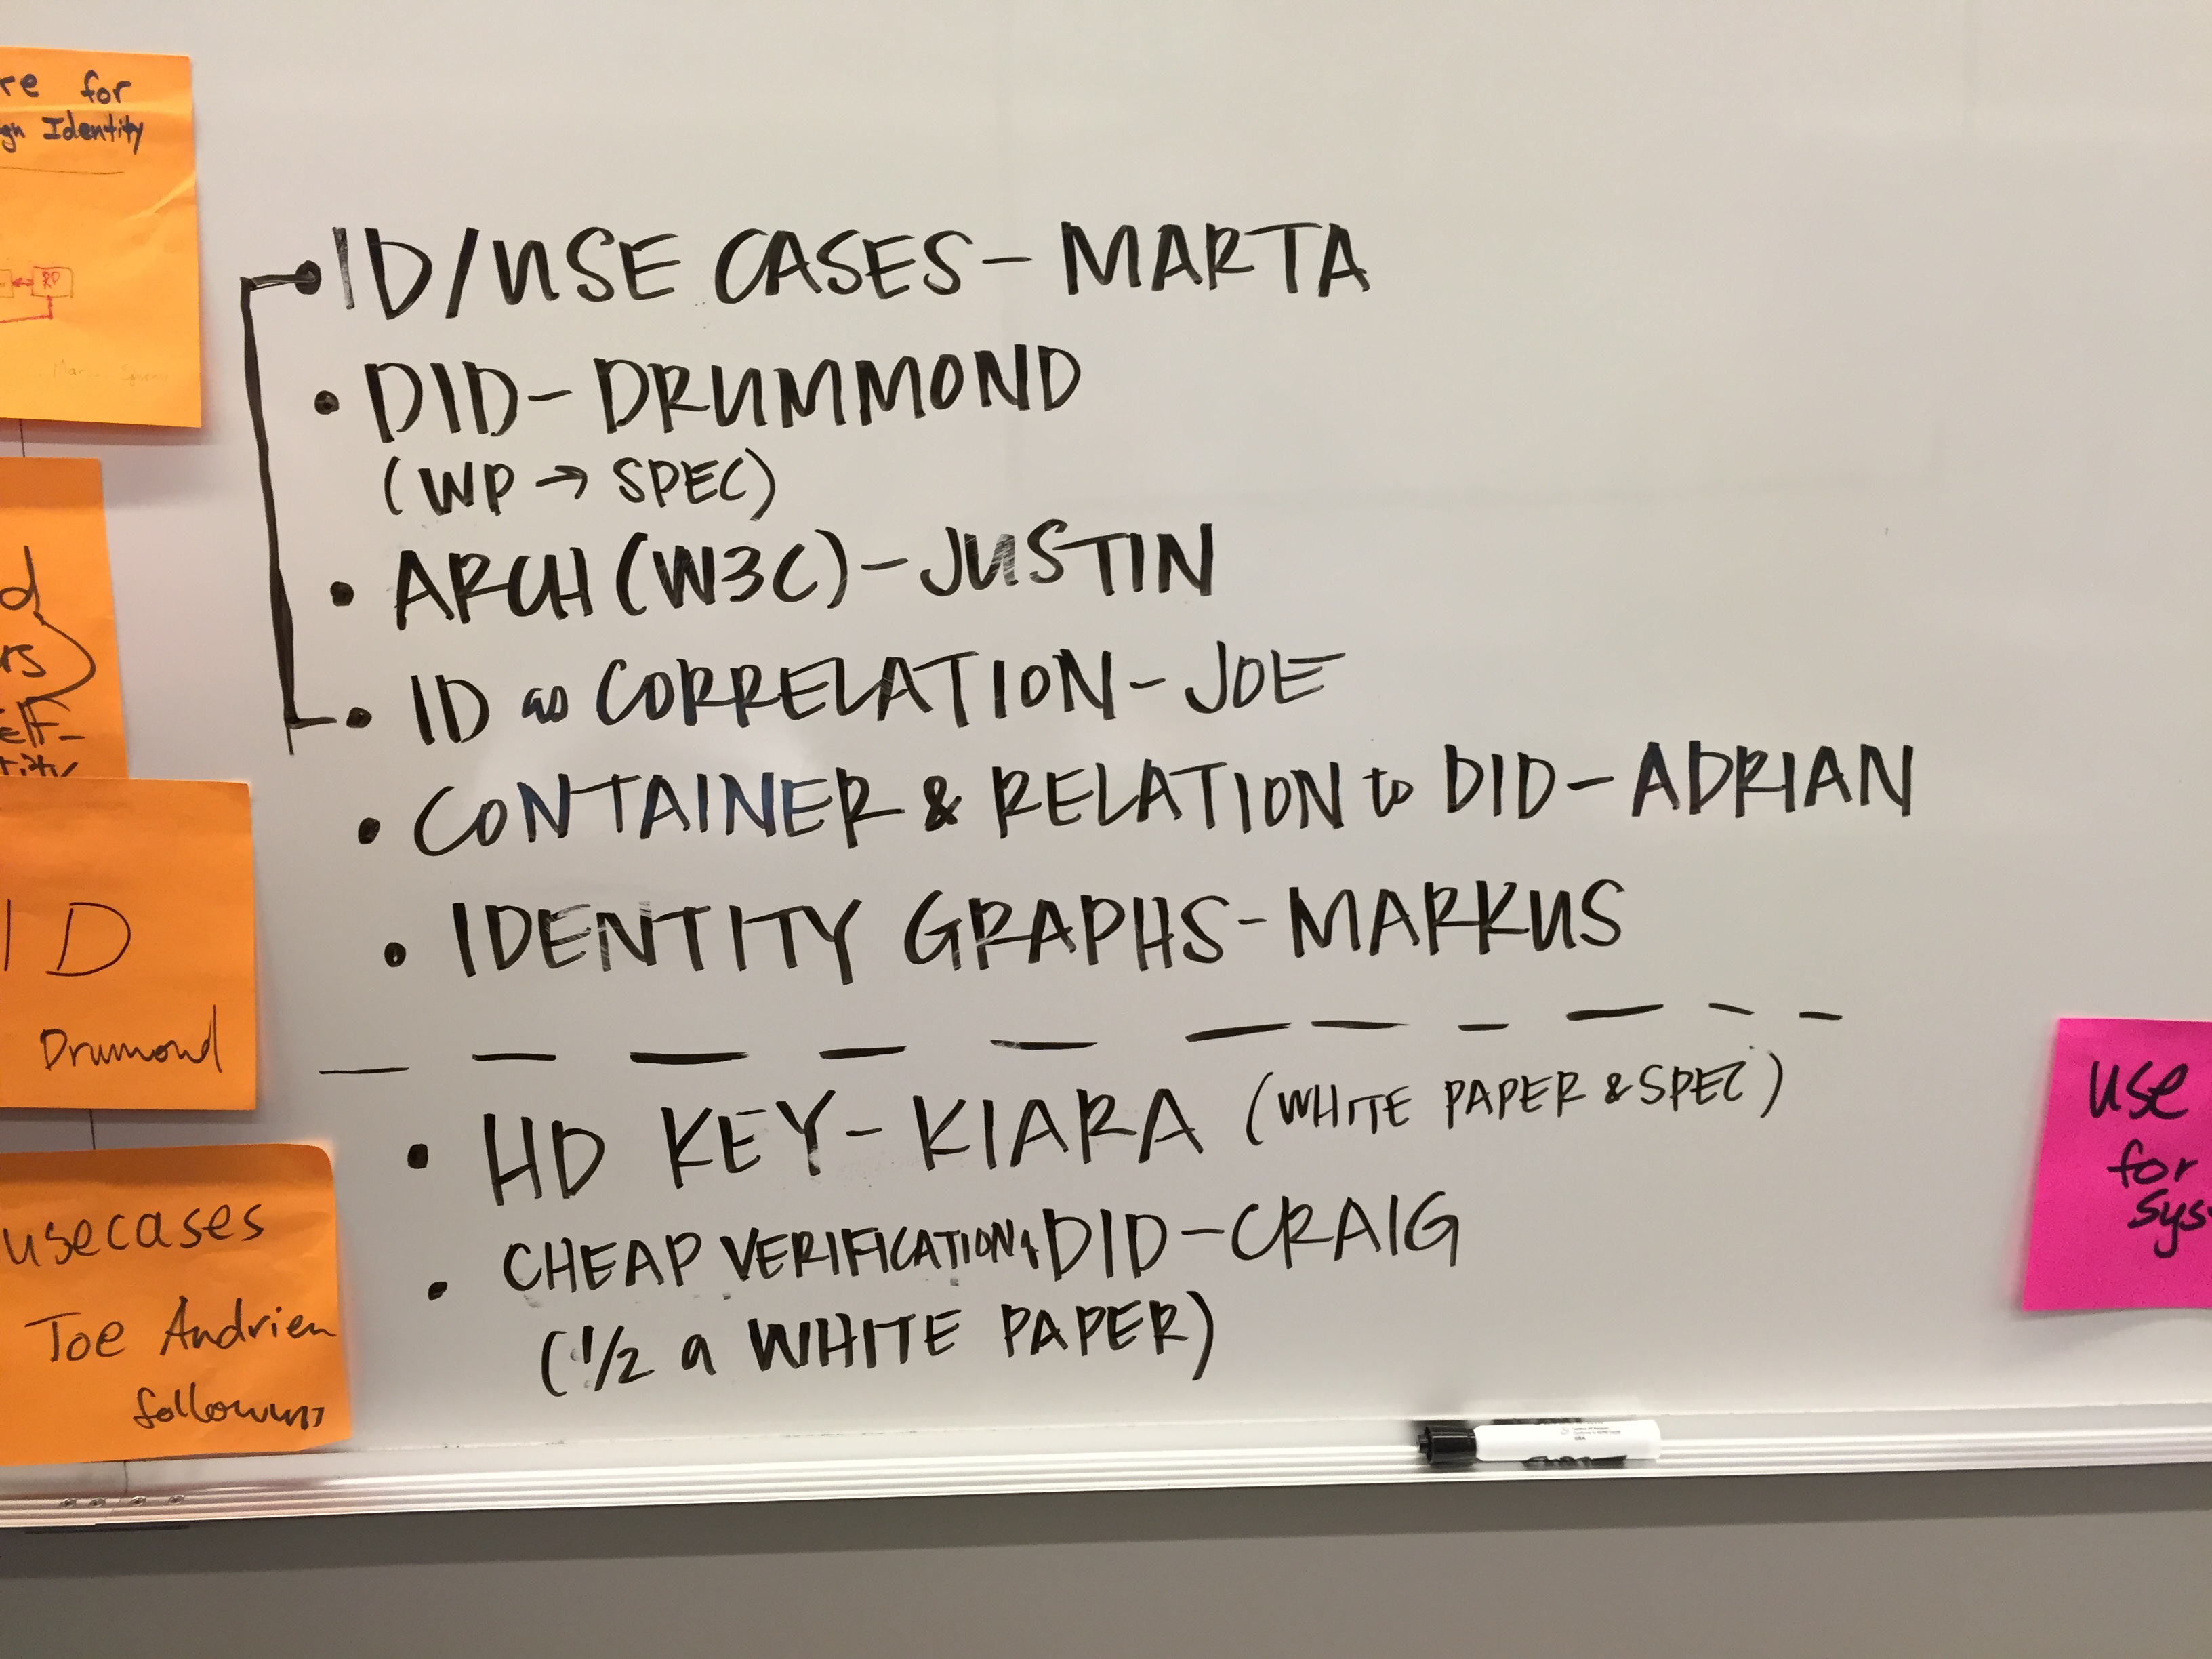 re for
gn Identity
RP
d
rs
elf-
ID
Drumond
usecases
Joe Andrien
• ID/USE CASES - MARTA
• DID - DRUMMOND
(WP → SPEC)
• ARCH (W3C) - JUSTIN
• ID as CORRELATION - JOE
• CONTAINER & RELATION to DID - ADRIAN
• IDENTITY GRAPHS - MARKUS
• HD KEY - KIARA (WHITE PAPER & SPEC)
• CHEAP VERIFICATION & DID - CRAIG
(1/2 a WHITE PAPER)
use
for
sys